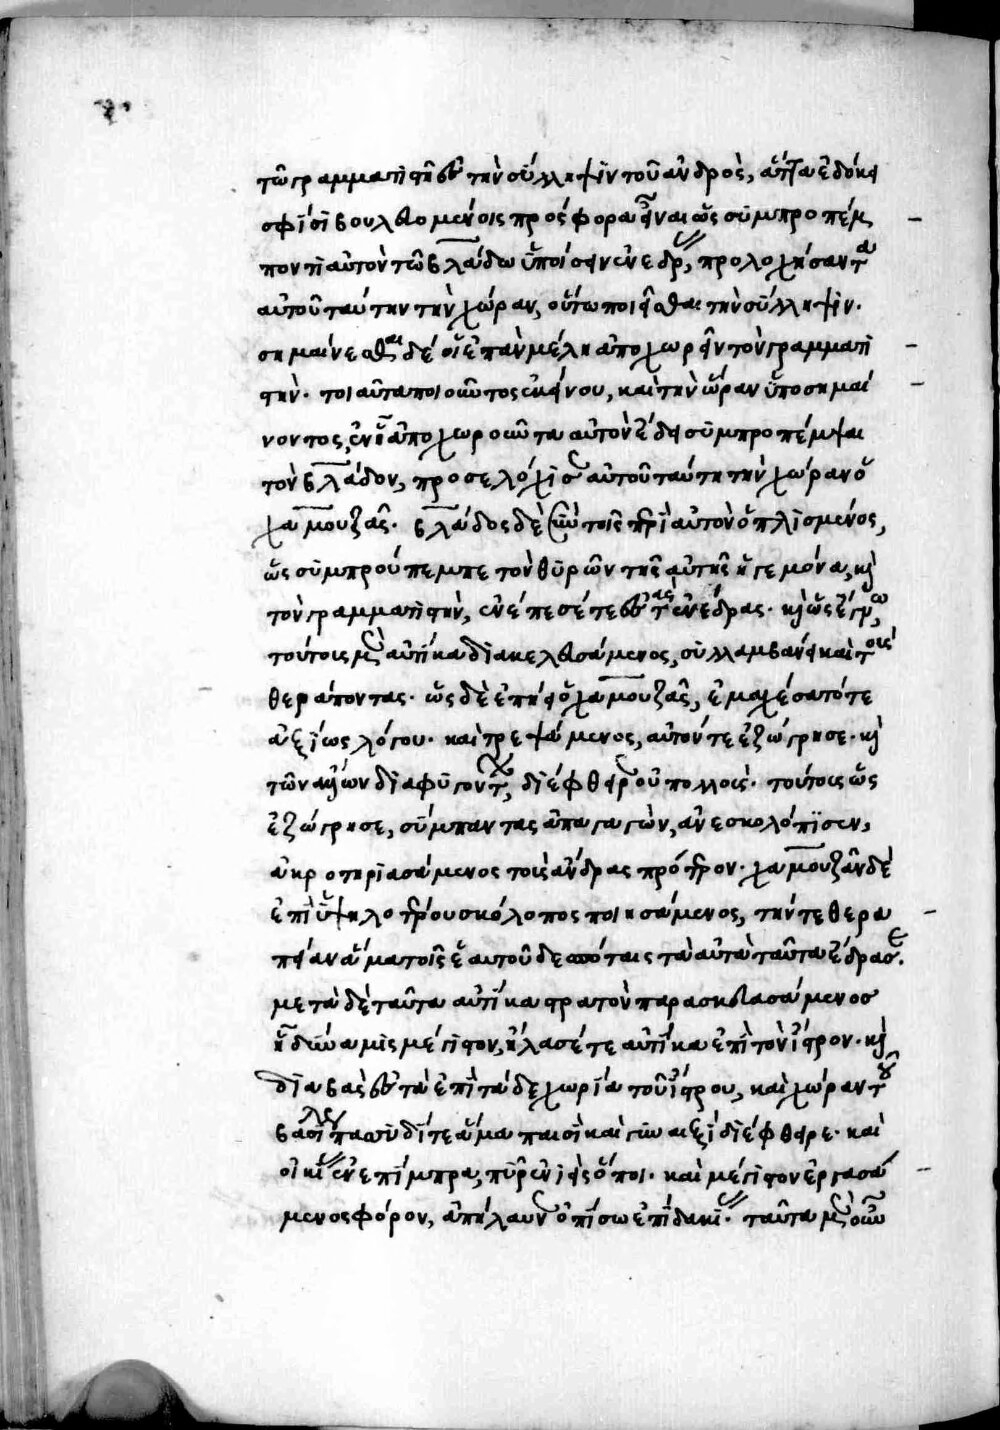 τῶ γραμματιστῆ ἐς τὴν σύλληψιν τοῦ ἀνδρὸς, ἅττα ἐδόκει
σφίσι βουλευομένοις πρόσφορα εἶναι ὡς συμπροπέμ
ποντι αὐτὸν τῶ βλάδω ὑποίσειν ἐνέδραν, προλοχήσαντα
αὐτοῦ ταύτην τὴν χώραν, οὕτω ποιεῖσθαι τὴν σύλληψιν.
σημαίνεσθαι δέ οἱ ἐπὰν μέλη ἀποχωρεῖν τὸν γραμματι
στήν. τοιαῦτα ποιοῦντος ἐκείνου, καὶ τὴν ὥραν ὑποσημαί
νοντος, ἐν ἧ ἀποχωροῦντα αὐτὸν ἔδει συμπροπέμψαι
τὸν βλάδον, προσελόχισεν αὐτοῦ ταύτη τὴν χώραν ὁ
χαμουζᾶς. βλάδος δὲ σὺν τοῖς περὶ αὐτὸν ὁπλισμένος,
ὡς συμπρούπεμπε τὸν θυρῶν τῆς αὐτῆς ἡγεμόνα, καὶ
τὸν γραμματιστὴν, ἐνέπεσέ τε ἐς τὰς ἐνέδρας. καὶ ὡς ἔγνω,
τούτοις μὲν αὐτίκα διακελευσάμενος, συλλαμβάνει καὶ τοὺς
θεράποντας. ὡς δὲ ἐπήει ὁ χαμουζᾶς, ἐμαχέσατό τε
ἀξίως λόγου. καὶ τρεψάμενος, αὐτόν τε ἐζώγρησε. καὶ
τῶν διαφυγόντων, διέφθειρεν οὐ πολλοὺς. τούτοις ὡς
ἐζώγρησε, σύμπαντας ἀπαγαγὼν, ἀνεσκολόπισεν,
ἀκροτηριασάμενος τοὺς ἄνδρας πρότερον. χαμουζᾶν δὲ
ἐπὶ ὑψηλοτέρου σκόλοπος ποιησάμενος, τήν τε θερα
πείαν ἅμα τοῖς ἑαυτοῦ δεσπόταις τὰ αὐτὰ ταῦτα ἔδρασε.
μετὰ δὲ ταῦτα αὐτίκα στρατὸν παρασκευασάμενος
ἧ δύναμις μέγιστον, ἤλασέ τε αὐτίκα ἐπὶ τὸν ἴστρον. καὶ
διαβὰς ἐς τὰ ἐπὶ τάδε χωρία τοῦ ἴστρου, καὶ χώραν τοῦ
βασιλέως πασῶν δίτε ἅμα παισὶ καὶ γυναιξὶ διέφθειρε. καὶ
οἰκίας ἐνεπίμπρα, πῦρ ἐνιεὶς ὅποι. καὶ μέγιστον ἐργασά
μενος φόρον, ἀπήλαυνεν ὀπίσω ἐπὶ δακίας. ταῦτα μὲν οὖν